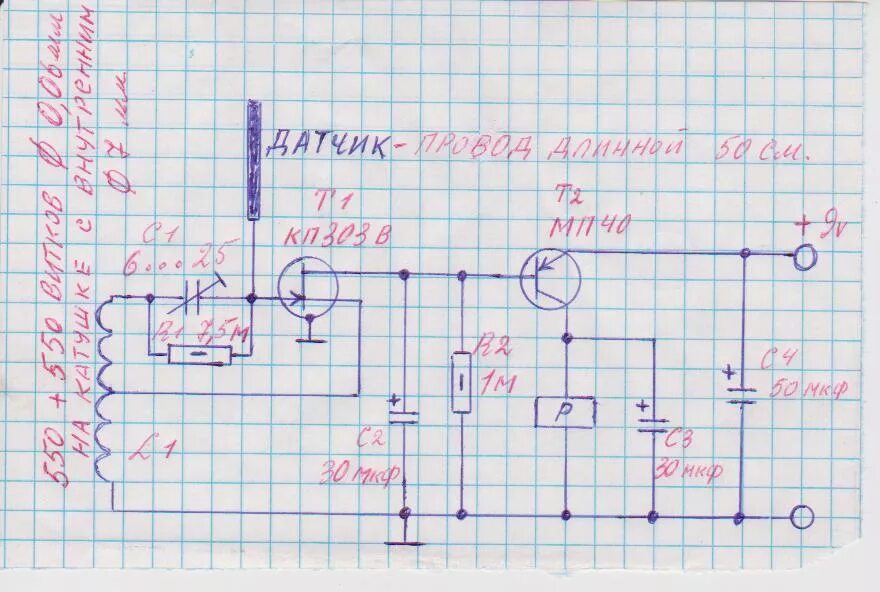 550 + 550 ВИТКОВ Ø 0,06мм
НА КАТУШКЕ С ВНУТРЕННИМ
Ø 7 мм.
ДАТЧИК - ПРОВОД ДЛИННОЙ 50 СМ.
C1
6...25
T1
КП303В
T2
МП40
+ 9v
R1 7,5М
R2
1М
L1
+
C2
30 мкф
P
+
C3
30 мкф
+
C4
50 мкф